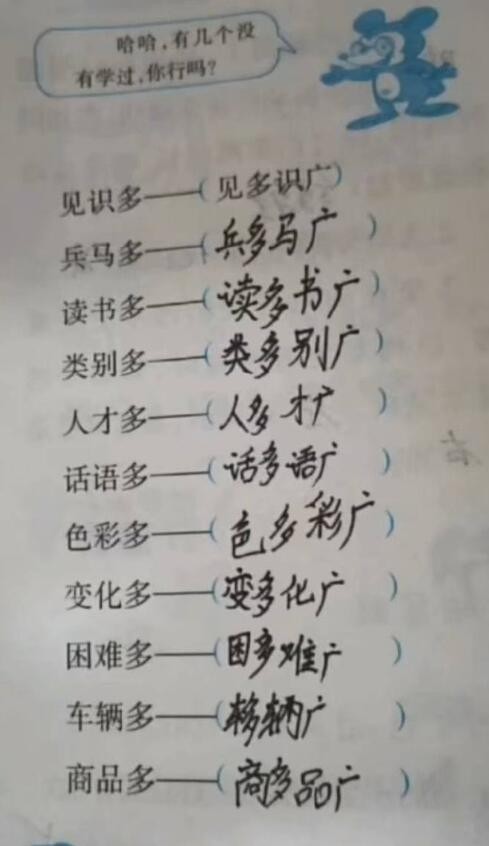 哈哈，有几个没
有学过，你行吗？
见识多——（见多识广）
兵马多——（兵多马广）
读书多——（读多书广）
类别多——（类多别广）
人才多——（人多才广）
话语多——（话多语广）
色彩多——（色多彩广）
变化多——（变多化广）
困难多——（困多难广）
车辆多——（车多辆广）
商品多——（商多品广）